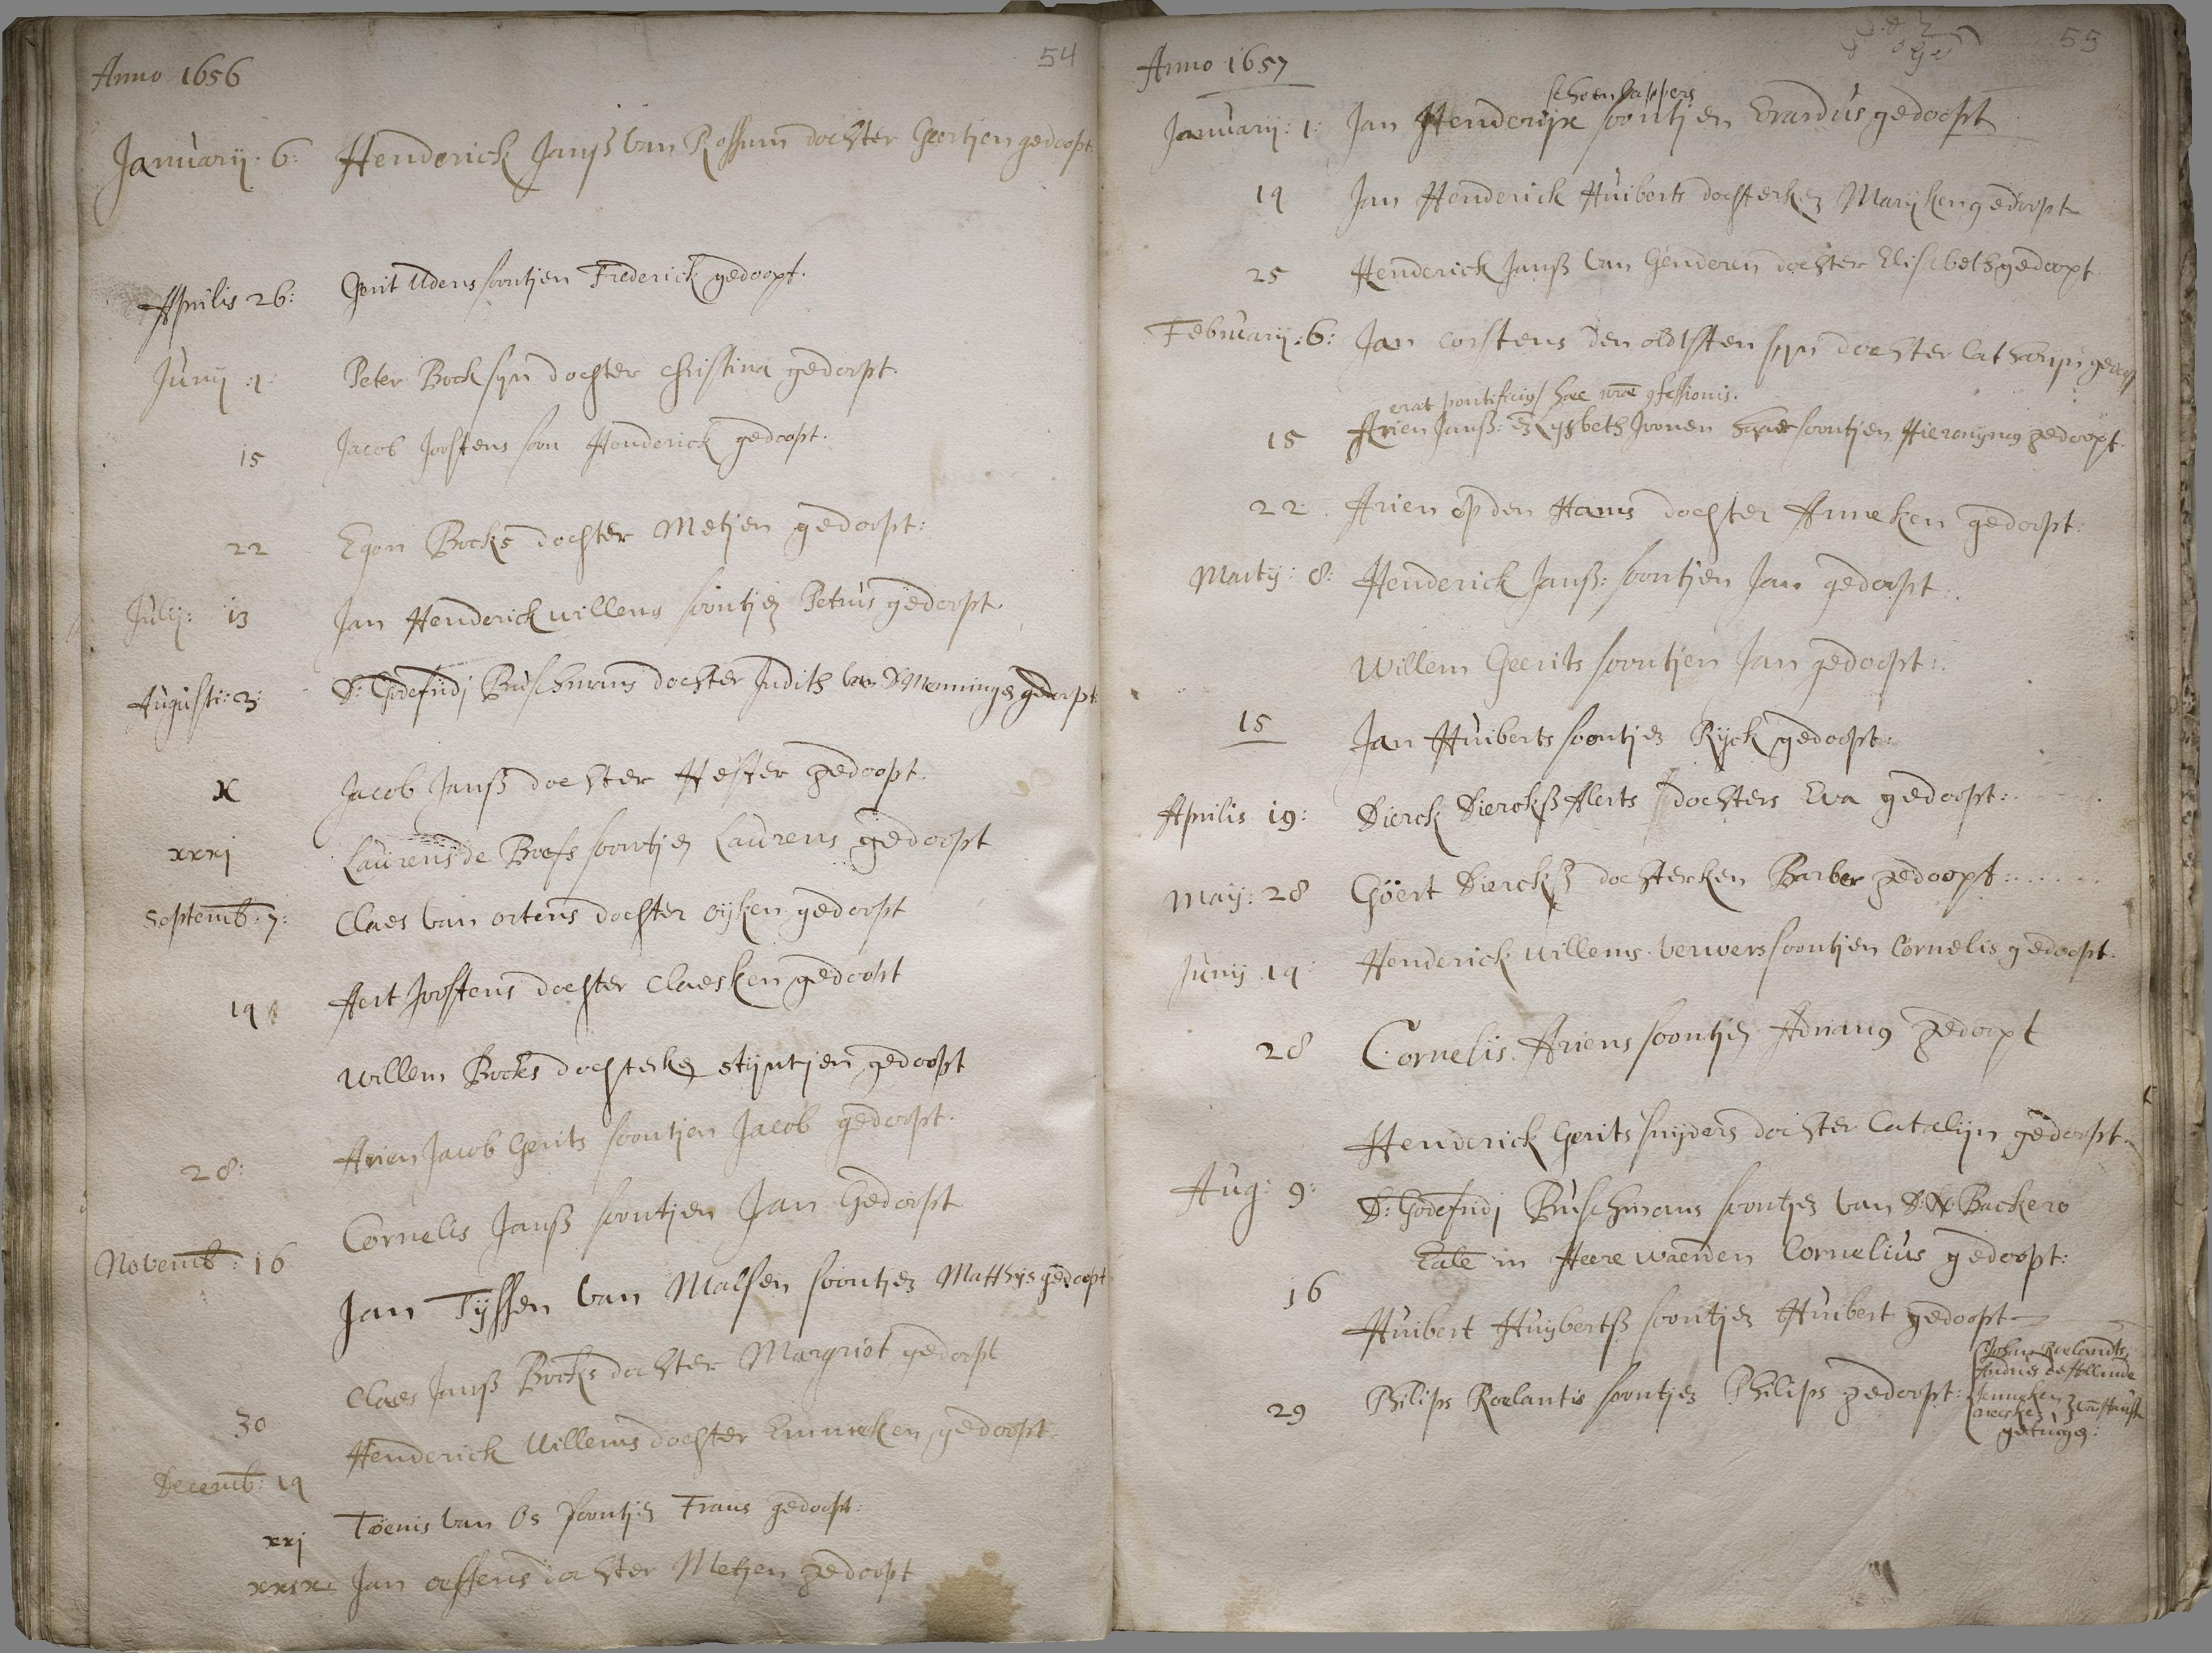 54
Anno 1656
Januarij: 6: Henderick Janß van Rossum dochter Geertjen gedoopt.
Aprilis 26: Gerit Udens soontjen Frederick gedoopt.
Junij :1: Peter Bock syn dochter Christina gedoopt.
15 Jacob Joostens soon Henderick gedoopt.
22 Egon Bocks dochter Metjen gedoopt:
Julij: 13 Jan Henderick willems soontjen Petrus gedoopt.
Augusti: 3: D: Godefridj Buschmans dochter Judith van gedoopt.
X Jacob Janß dochter Hester gedoopt.
xxxj Laurens de Boefs soontjen Laurens gedoopt
Septemb: 7: Claes van ortens dochter oijken gedoopt
14 Aert Joostens dochter Claesken gedoopt
Willem Bocks dochterken stijntjen gedoopt
28: Arien Jacob Gerits soontjen Jacob gedoopt.
Cornelis Janß soontjen Jan Gedoopt
Novemb: 16 Jan Tijssen van Malsen soontjen Matthijs gedoopt
Claes Janß Bocks dochter Margriet gedoopt
30 Henderick Willems dochter Emmeken gedoopt.
Decemb: 14
xxj Toenis van Os soontjen Frans gedoopt:
xxix Jan dochter Metjen gedoopt
55
Anno 1657
schoenlappers
Januarij: 1: Jan Henderijx soontjen Erardus gedoopt
14 Jan Henderick Huiberts dochterken Marijken gedoopt
25 Henderick Janß van Genderen dochter Elisabeth gedoopt
Februarij: 6: Jan Corstens den oldtsten syn dochter Catharijn gedoopt
erat pontificius hac confessionis.
15 Arien Janß: en Lysbeth Joonen haer soontjen Hieronymus gedoopt.
22 Arien op den Hams dochter Anneken gedoopt:
Martij: 8: Henderick Janß: soontjen Jan gedoopt:
Willem Geerits soontjen Jan gedoopt:
15 Jan Huiberts soontjen Rijck gedoopt:
Aprilis 19: Dierck Diercksß Alerts dochters Eva gedoopt:
Maij: 28 Goert Diercksß dochterken Barber gedoopt:
Junij 14: Henderick willems verwers soontjen Cornelis gedoopt.
28 Cornelis Ariens soontjen Adrianus gedoopt
Henderick Gerits snijders dochter Catalijn gedoopt.
Aug: 9: D: Godefridj Buschmans soontjen van D: Backero
in Heere waerden Cornelius gedoopt:
16 Huibert Huijbertß soontjen Huibert gedoopt
29 Philips Roelantis soontjen Philips gedoopt:
Johan Roelandts
Andries de
Jenneken
getuigen: